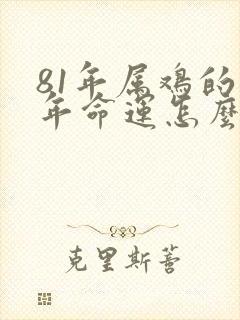 81年属鸡的
年命运怎麼
克里斯蒂